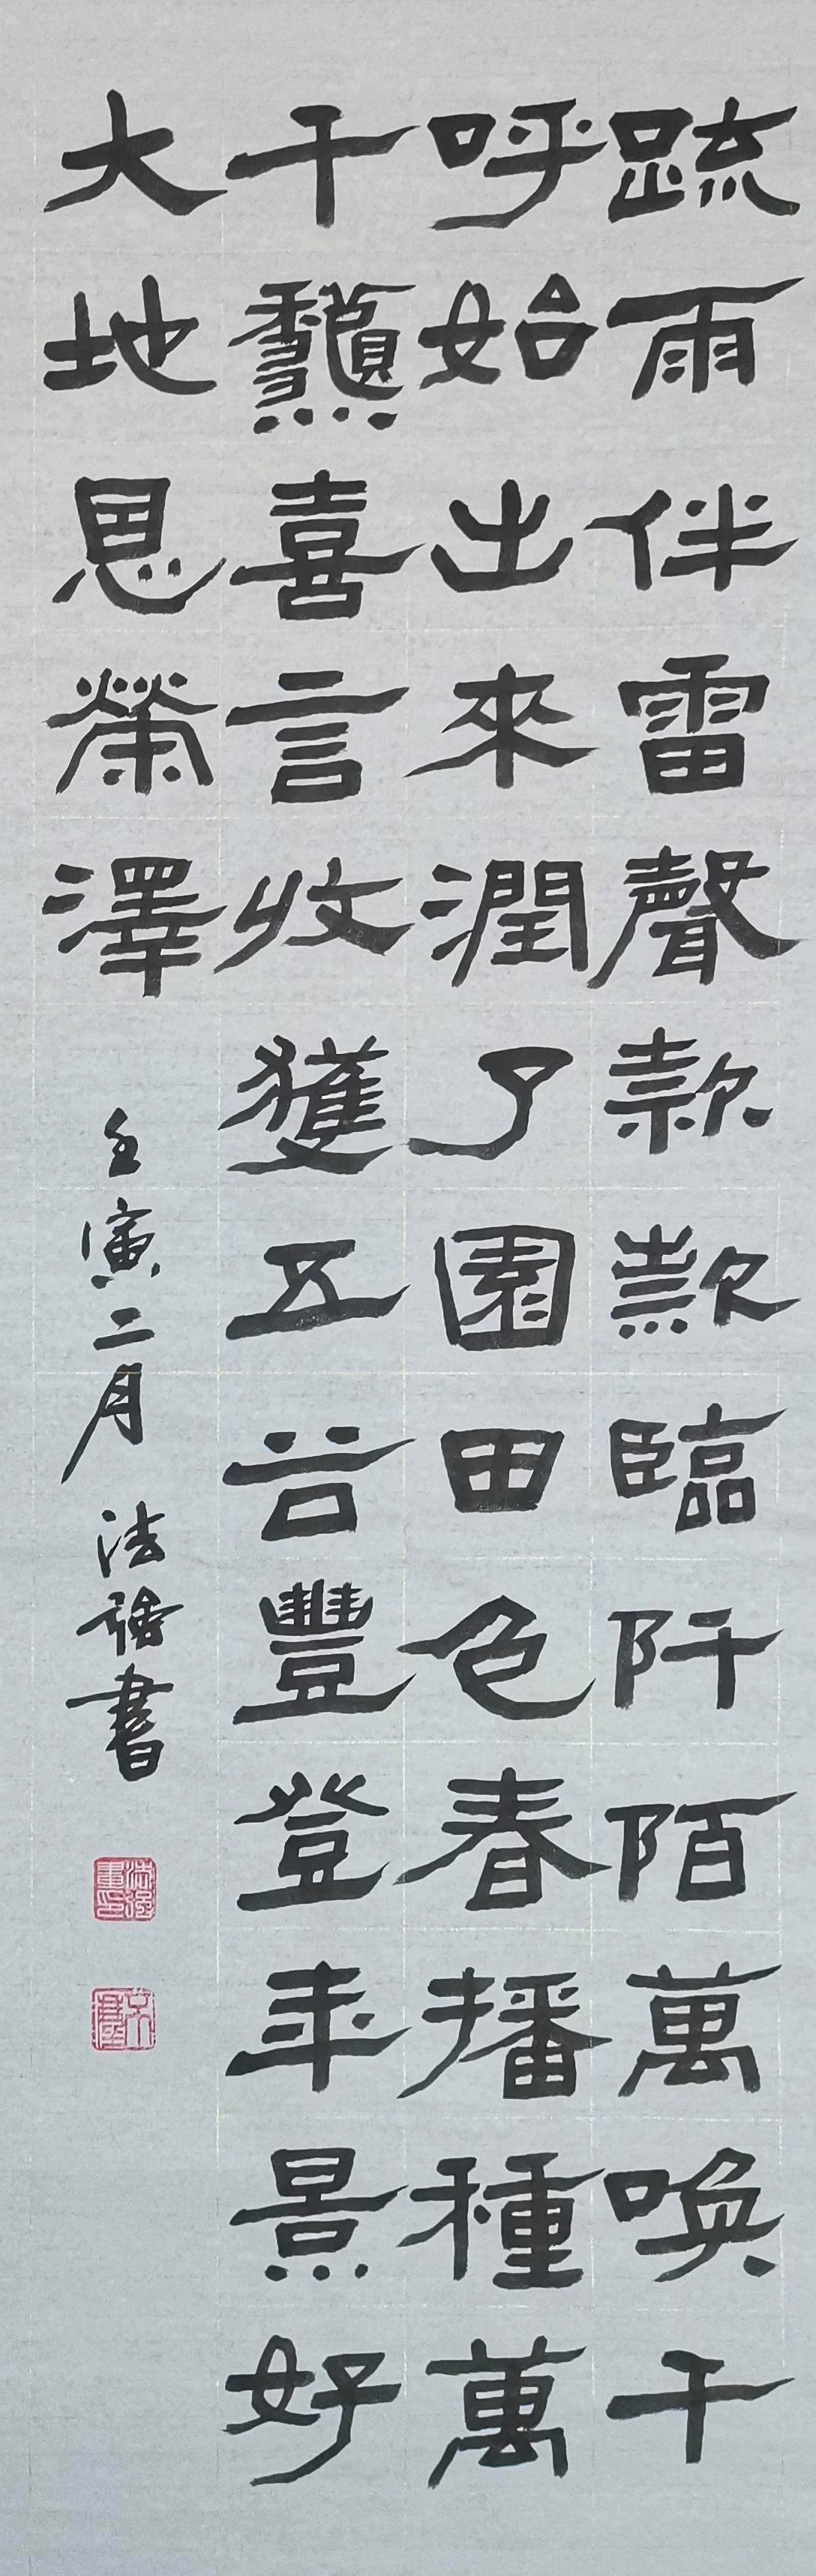 疏雨伴雷聲款款臨阡陌萬唤千
呼始出來潤了園田色春播種萬
千喜言收獲五谷豐登年景好
大地恩榮澤
壬寅二月 法強書